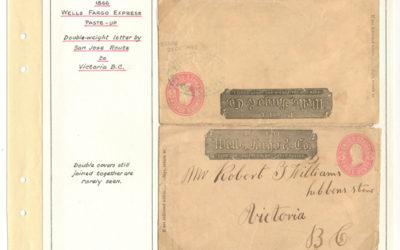 1866
WELLS FARGO EXPRESS
PASTE-UP
Double-weight letter by
San Jose Route
to
Victoria B.C.
Double covers still
joined together are
rarely seen.
PAID
Wells, Fargo & Co.
Wells, Fargo & Co.
Mr Robert T Williams
Victoria
B C